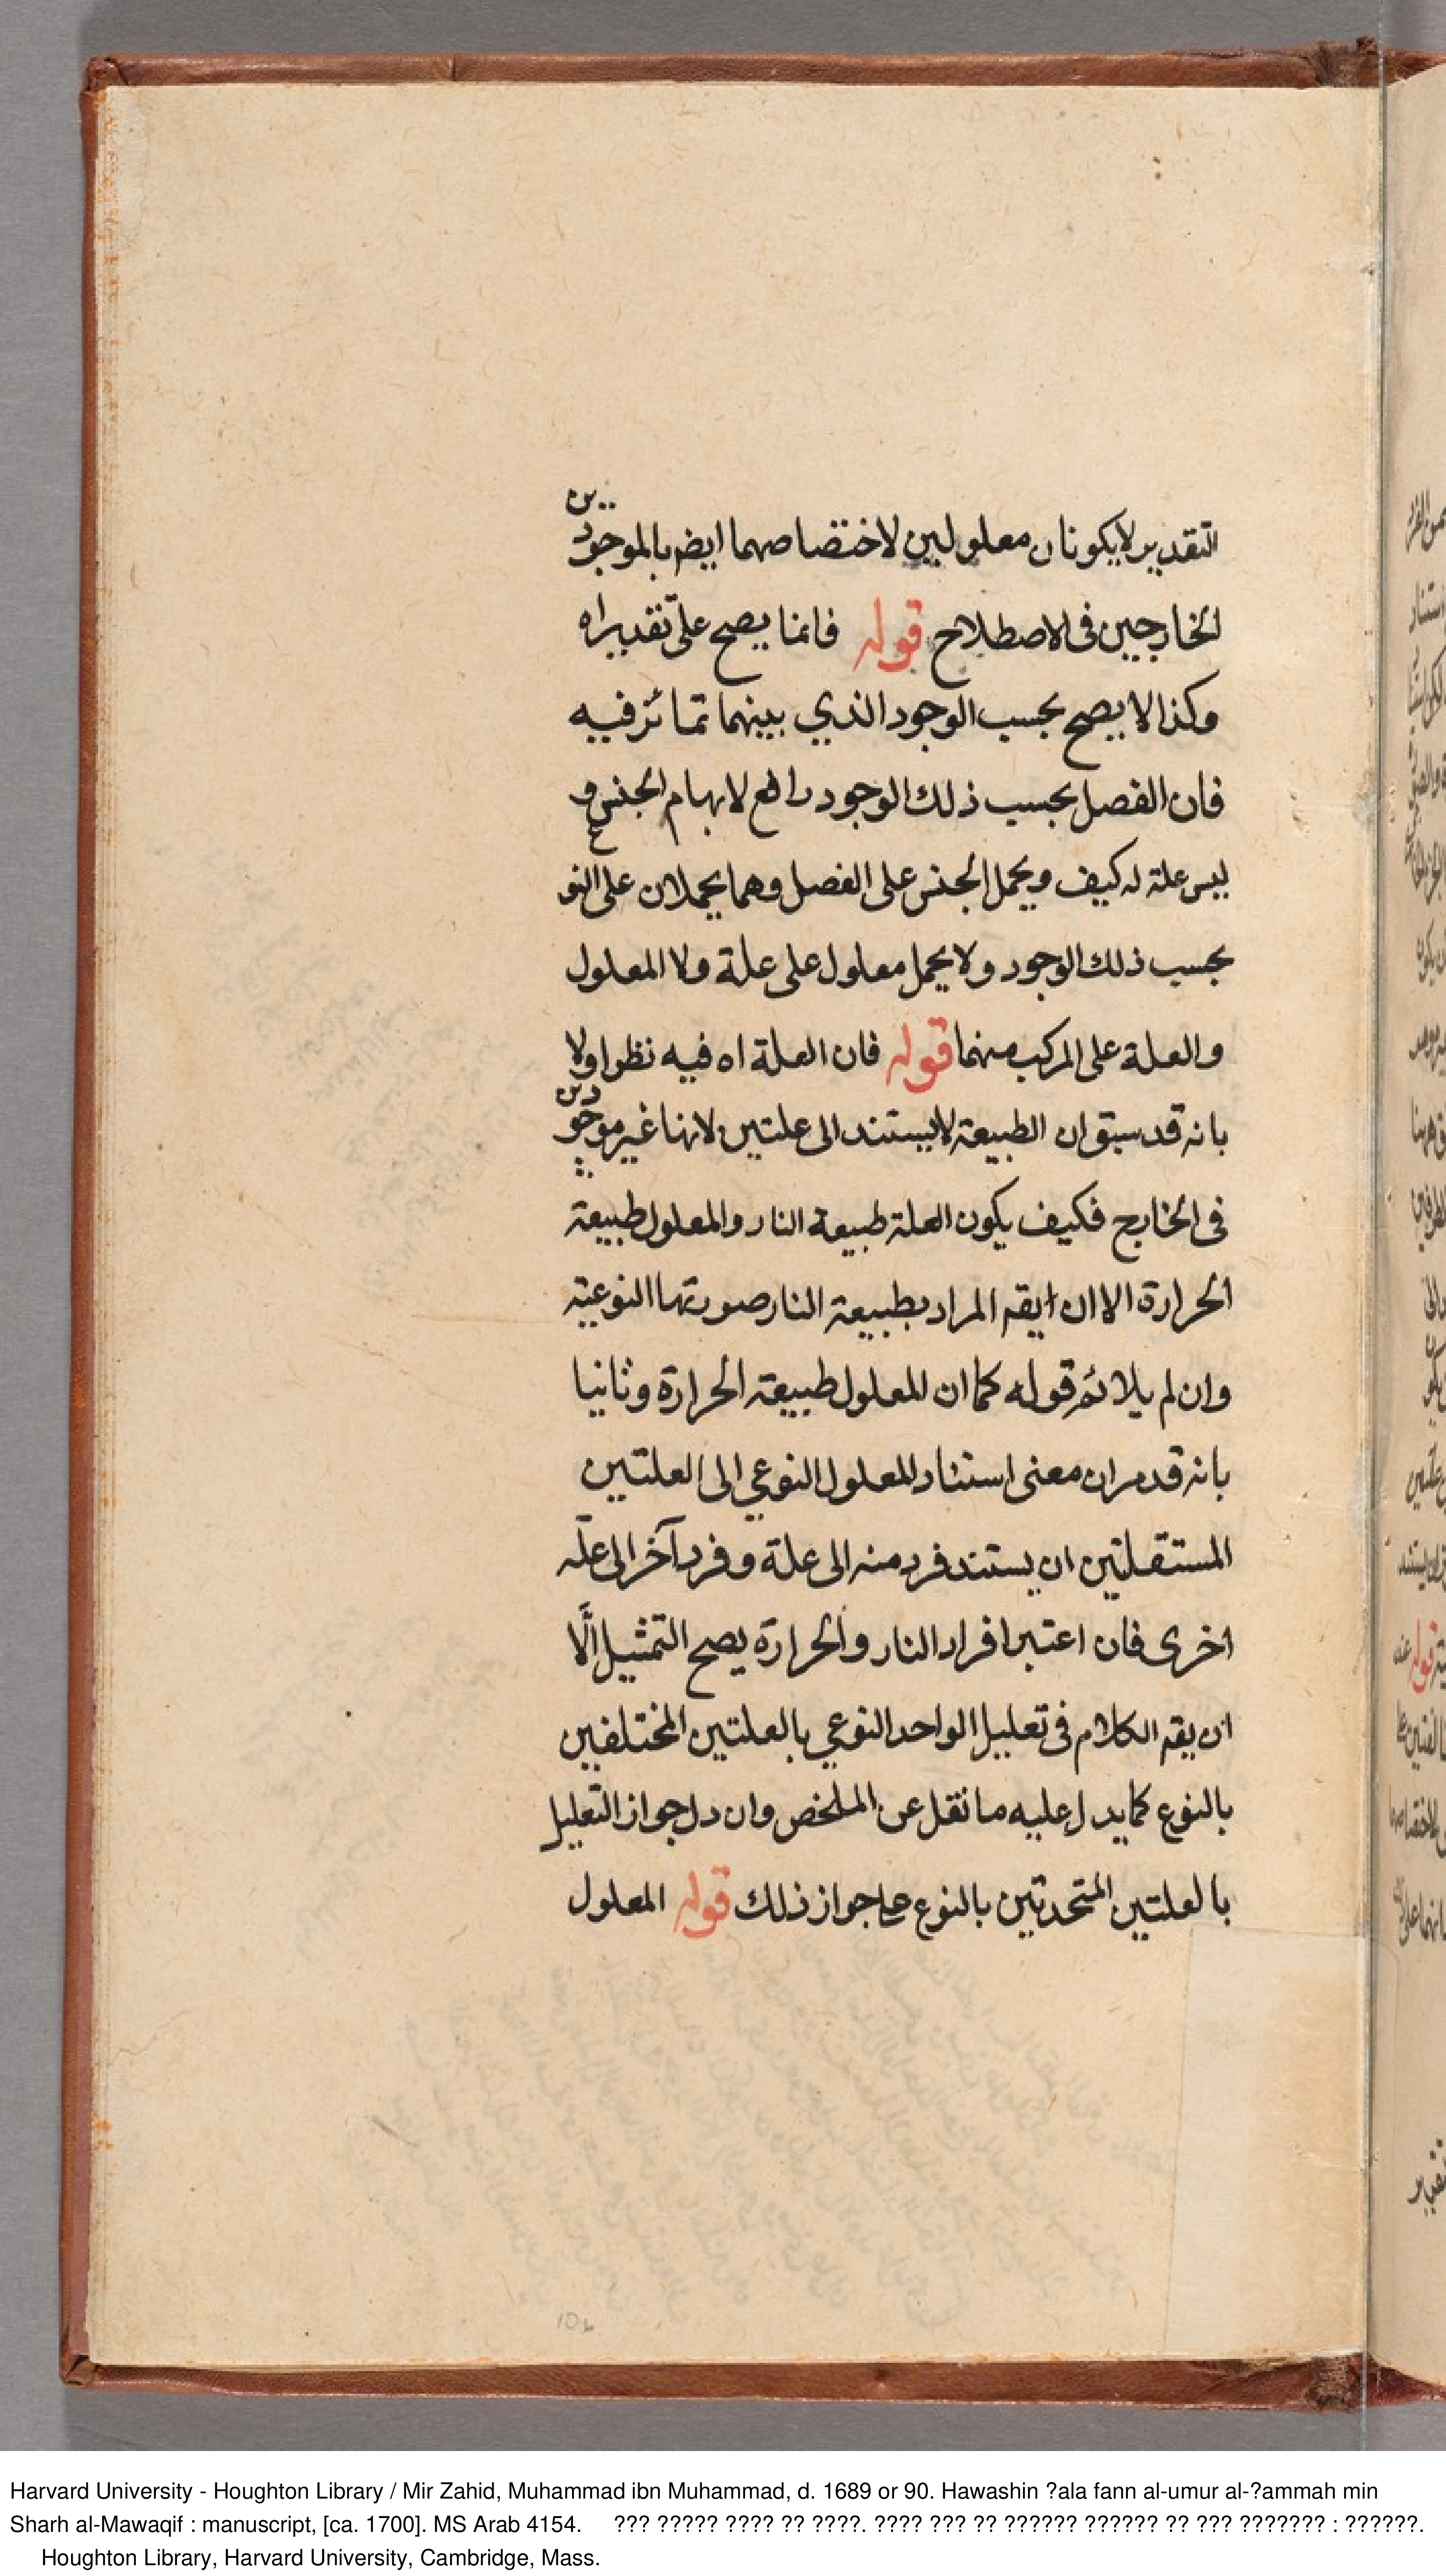 التقدير لا يكونان معلولين لاختصاصهما ايضم بالموجودين
الخارجيين فى الاصطلاح قوله فانما يصح على تقدير اه
وكذا لا يصح بحسب الوجود الذي بينهما تمائز فيه
فان الفصل بحسب ذلك الوجود رافع لابهام الجنس و
ليس علة له كيف ويحمل الجنس على الفصل وهما يحملان على النوع
بحسب ذلك الوجود ولا يحمل معلول على علة ولا المعلول
والعلة على المركب منهما قوله فان العلة اه فيه نظر اولا
بانه قد سبق ان الطبيعة لا يستند الى علتين لانها غير موجودين
فى الخارج فكيف يكون العلة طبيعة النار والمعلول طبيعة
الحرارة الا ان ايقم المراد بطبيعة النار صورتها النوعية
وان لم يلائم قوله كما ان المعلول طبيعة الحرارة وثانيا
بانه قد مر ان معنى استناد المعلول النوعي الى العلتين
المستقلتين ان يستند فرد منه الى علة وفرد آخر الى علة
اخرى فان اعتبر افراد النار والحرارة يصح التمثيل الّا
ان يقم الكلام فى تعليل الواحد النوعي بالعلتين المختلفين
بالنوع كما يدل عليه ما نقل عن الملخص وان دل جواز التعليل
بالعلتين المتحدتين بالنوع على جواز ذلك قوله المعلول
106
Harvard University - Houghton Library / Mir Zahid, Muhammad ibn Muhammad, d. 1689 or 90. Hawashin ?ala fann al-umur al-?ammah min
Sharh al-Mawaqif : manuscript, [ca. 1700]. MS Arab 4154. ??? ????? ???? ?? ????. ???? ??? ?? ?????? ?????? ?? ??? ??????? : ??????.
Houghton Library, Harvard University, Cambridge, Mass.